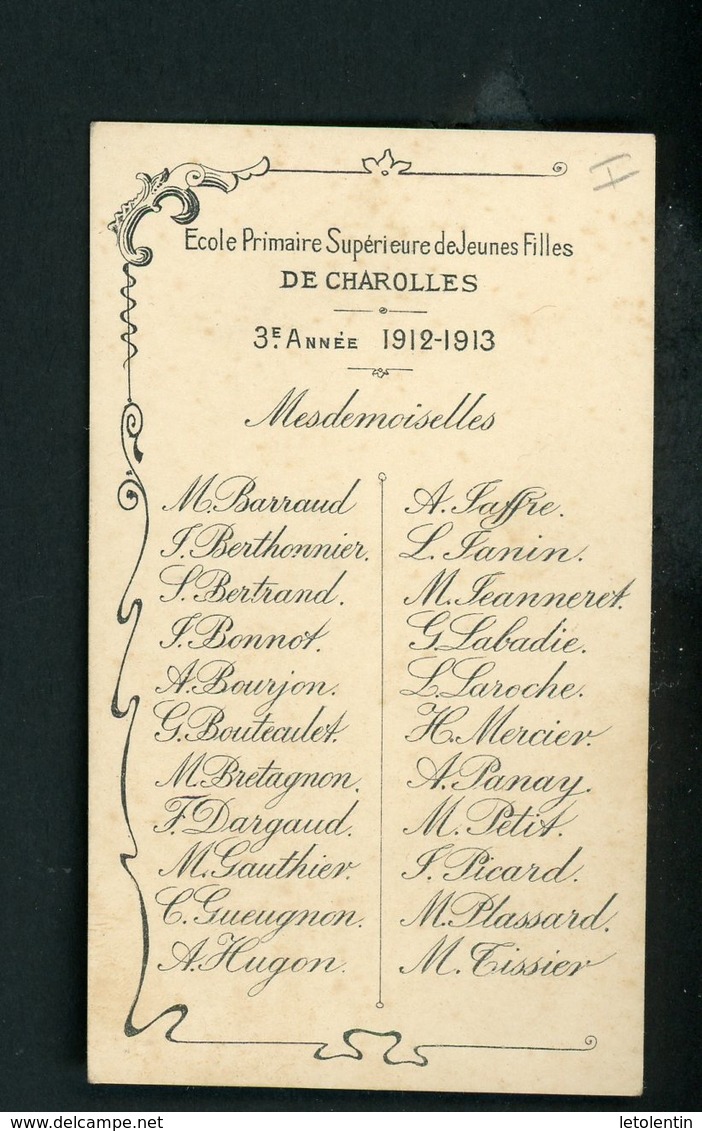 Ecole Primaire Supérieure de Jeunes Filles
DE CHAROLLES
3E. ANNÉE 1912-1913
Mesdemoiselles
M. Barraud
J. Berthonnier.
S. Bertrand.
J. Bonnot.
A. Bourjon.
G. Bouteculet.
M. Bretagnon.
F. Dargaud.
M. Gauthier.
C. Gueugnon.
A. Hugon.
A. Jaffre.
L. Janin.
M. Jeanneret.
G. Labadie.
L. Laroche.
H. Mercier.
A. Panay.
M. Petit.
J. Picard.
M. Plassard.
M. Tissier
www.delcampe.net
letolentin